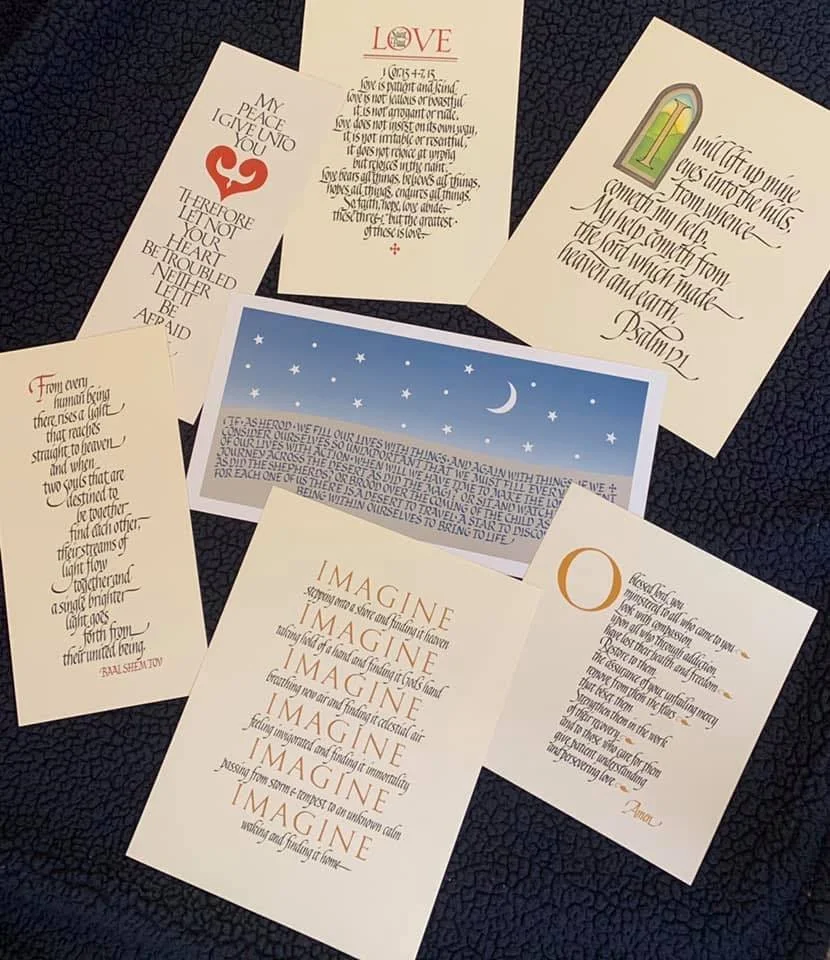 MY
PEACE
I GIVE UNTO
YOU
THEREFORE
LET NOT
YOUR
HEART
BE TROUBLED
NEITHER
LET IT
BE
AFRAID
LOVE
Saint
Paul
1 Cor. 13 4-7, 13
Love is patient and kind
love is not jealous or boastful
it is not arrogant or rude.
Love does not insist on its own way,
it is not irritable or resentful,
it does not rejoice at wrong
but rejoices in the right.
Love bears all things, believes all things,
hopes all things, endures all things.
So faith, hope, love abide
these three, but the greatest
of these is love.
I will lift up mine
eyes unto the hills,
from whence
cometh my help.
My help cometh from
the lord which made
heaven and earth
Psalm 121
From every
human being
there rises a light
that reaches
straight to heaven
and when
two souls that are
destined to
be together
find each other,
their streams of
light flow
together and
a single brighter
light goes
forth from
their united being.
BAAL SHEM TOV
IF, AS HEROD, WE FILL OUR LIVES WITH THINGS, AND AGAIN WITH THINGS, IF WE
CONSIDER OURSELVES SO UNIMPORTANT THAT WE MUST FILL EVERY
OF OUR LIVES WITH ACTION, WHEN WILL WE HAVE TIME TO MAKE THE LONG
JOURNEY ACROSS THE DESERT AS DID THE MAGI, OR SIT AND WATCH
AS DID THE SHEPHERDS, OR BROOD OVER THE COMING OF THE CHILD AS
FOR EACH ONE OF US THERE IS A DESERT TO TRAVEL, A STAR TO
BEING WITHIN OURSELVES TO BRING TO LIFE
IMAGINE
stepping onto a shore and finding it heaven
IMAGINE
taking hold of a hand and finding it God's hand
IMAGINE
breathing new air and finding it celestial air
IMAGINE
feeling invigorated and finding it immortality
IMAGINE
passing from storm & tempest to an unknown calm
IMAGINE
waking and finding it home
O blessed lord, you
ministered to all who came to you
look with compassion
upon all who through addiction
have lost their health and freedom
Restore to them
the assurance of your unfailing mercy
remove from them the fears
that beset them
Strengthen them in the work
of their recovery
and to those who care for them
give patient understanding
and persevering love
Amen